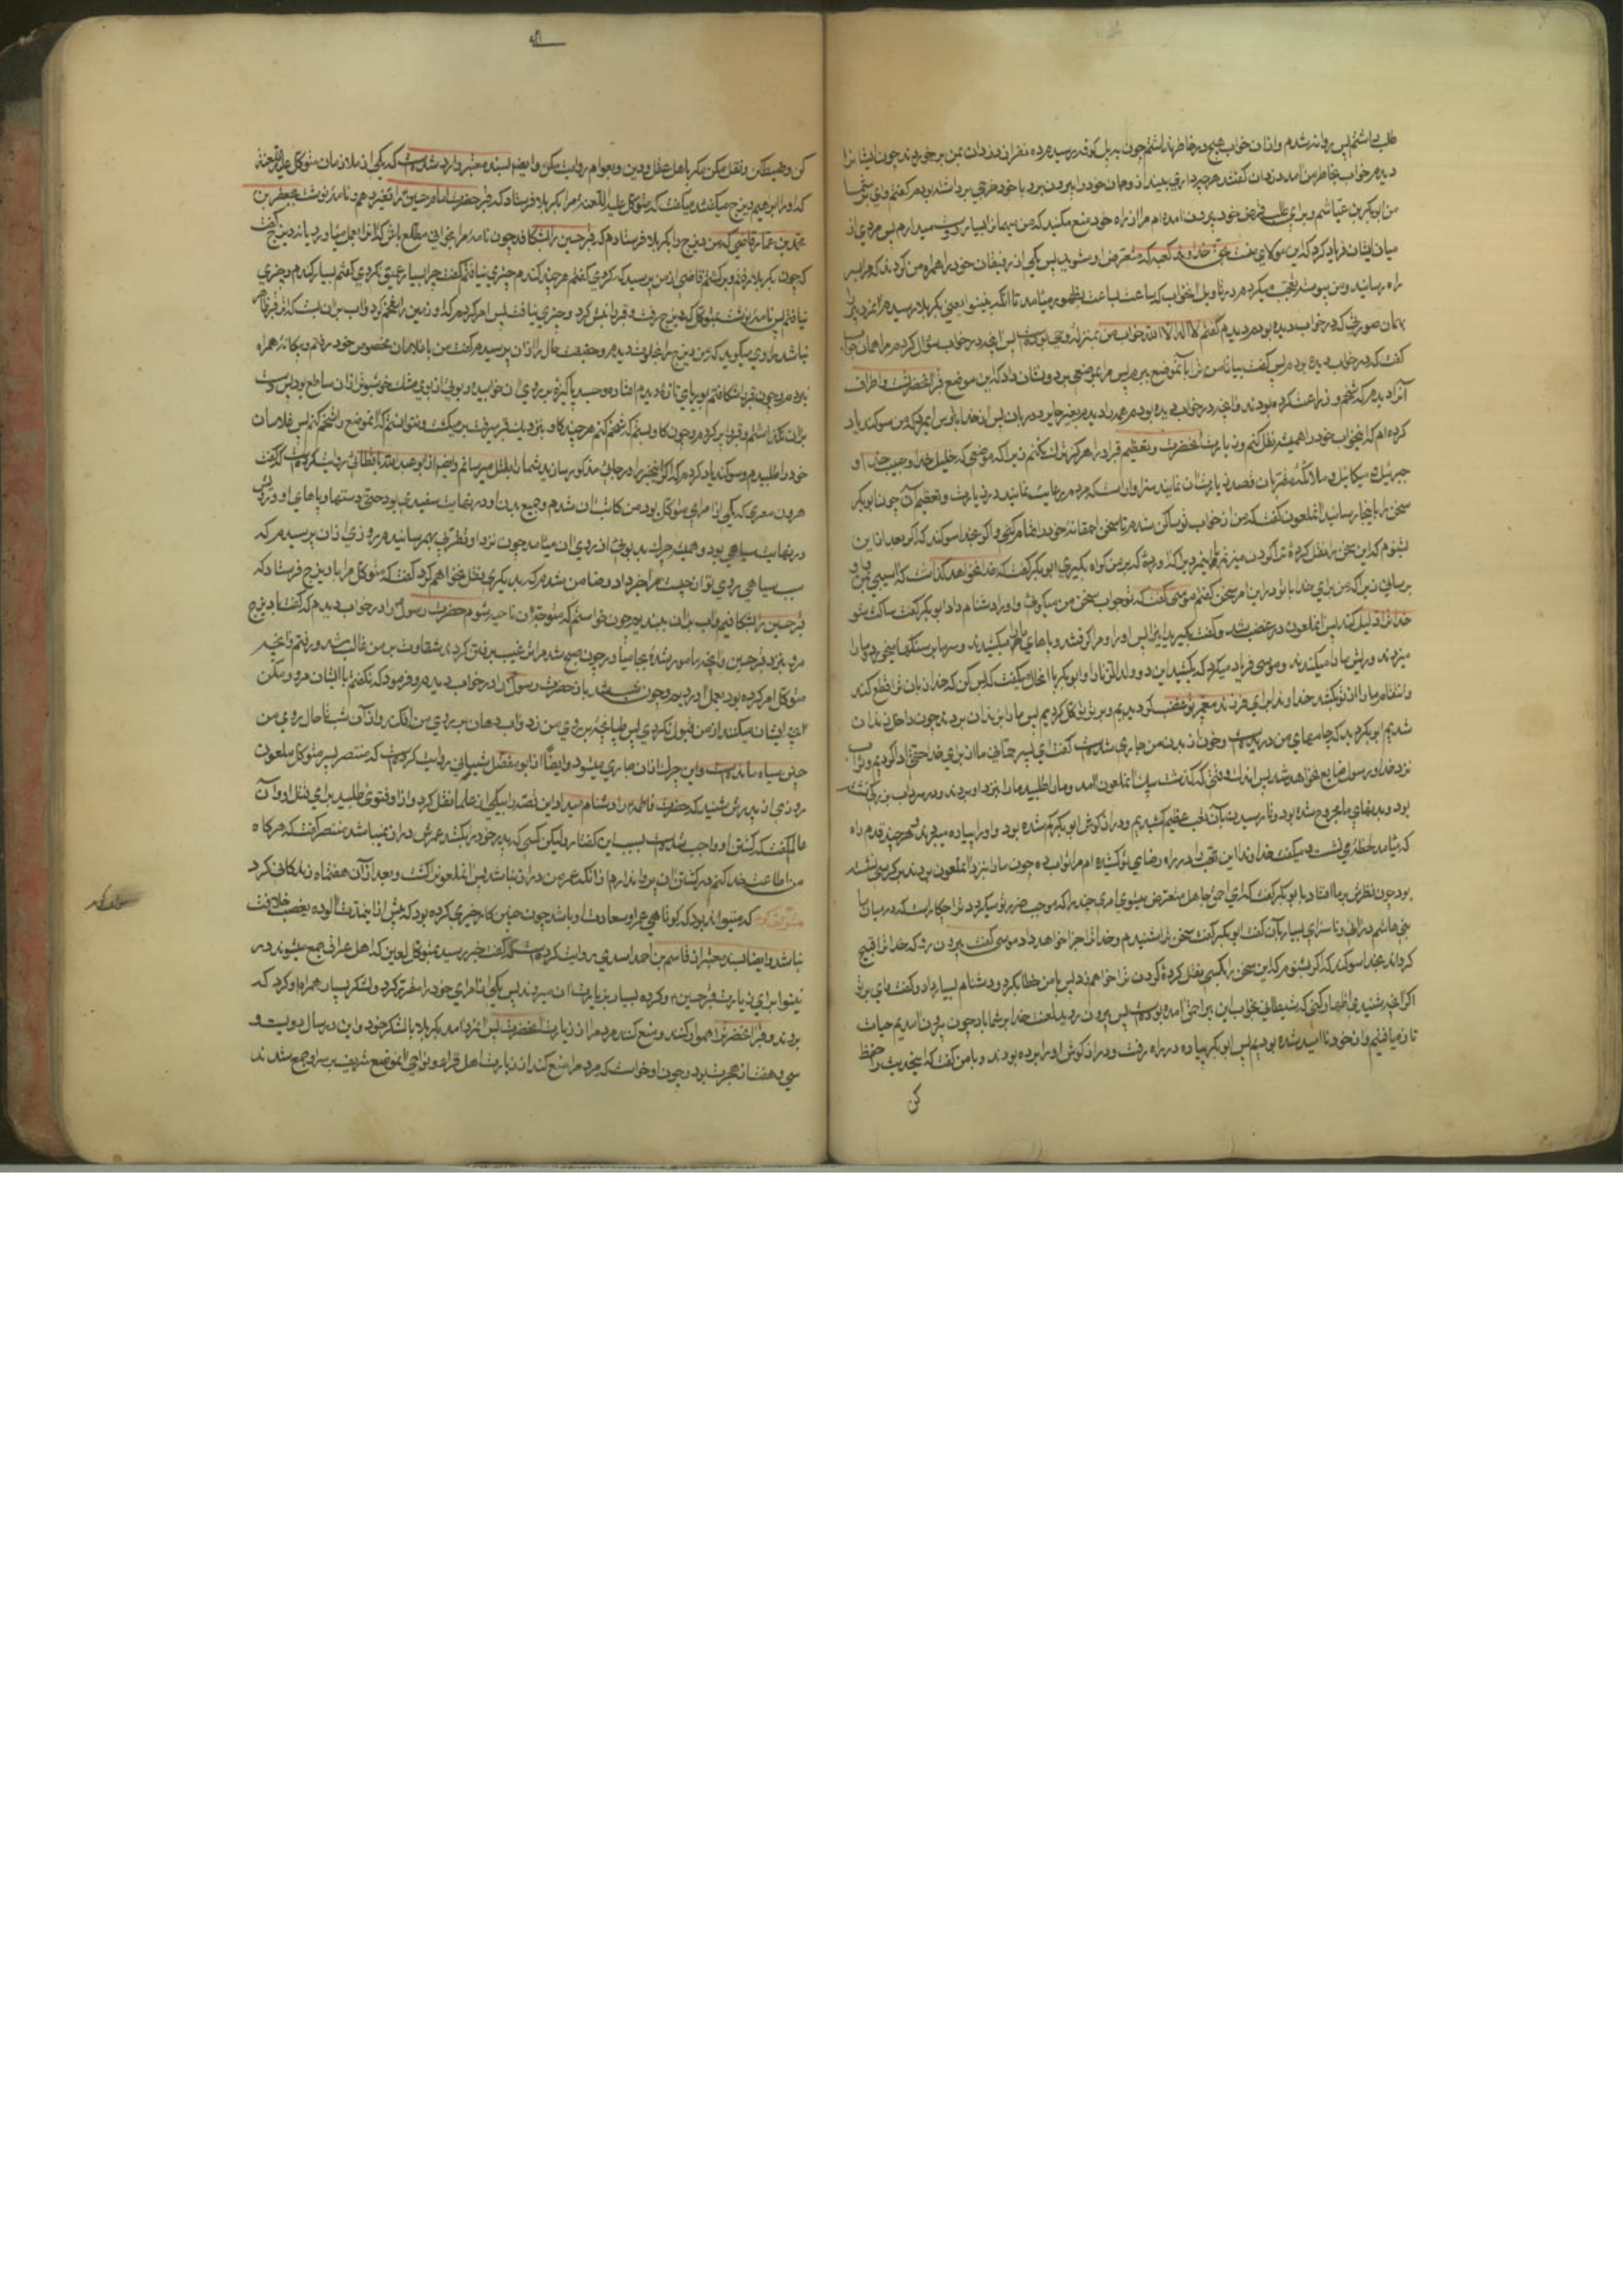 طلب باشم پس روانه شدم و از آن خواب هیچ در خاطر نداشتم چون بپل کوفه رسیدم ده نفر از دزدان بمن برخوردند چون ایشانرا
دیدم خواب بخاطر من آمد دزدان گفتند هرچه داری بینداز و جان خود را بیرون بر و با خود خرجی برداشته بودم گفتم وای بر شما
من ابوبکر بن عیاشم و برای طلب قرض خود بیرون آمده ام مرا از راه خود منع مکنید که من بسیار پس مردی از
میان ایشان فریاد کرد که این مولای منست بحق خداوند کعبه که متعرض او مشوید پس یکی از رفیقان خود را همراه من کردند که مرا بسر
راه رسانید و من پیوسته تعجب میکردم در تاویل آن خواب که ساعت بساعت بظهور میآمد تا آنکه به نینوا یعنی بکربلا رسیدم آن مرد پیر را
بهمان صورتی که در خواب دیده بودم دیدم گفتم لا اله الا الله خواب من بمنزله وحی بوده است پس آنچه در خواب سؤال کردم مرا همان جواب
گفت که در خواب دیده بودم پس گفت بیا تا من ترا بآن موضع ببرم پس مرا بموضعی برد و نشان داد که این موضع قبر آنحضرتست و اطراف
آنرا دیدم که شخم و زراعت کرده بودند و آنچه در خواب دیده بودم همه را دیدم بغیر حایر و دربان پس از خدا بترس ای مرد که من سوگند یاد
کرده ام که این خواب خود را همیشه نقل کنم و زیارت آنحضرت و تعظیم قبر او را هرگز ترک نکنم زیرا که موضعی که خلیل خدا و حبیب خدا و
جبرئیل و میکائیل و ملائکه مقربان قصد زیارت آن نمایند سزاوار است که مردم رعایت نمایند در زیارت و تعظیم آن چون ابوبکر
سخن را باینجا رسانید آن ملعون گفت که من از جواب تو ساکن شدم تا سخن احمقانه خود را تمام کنی والا بخدا سوگند که اگر بعد از این
بشنوم که این سخن را نقل کرده ترا گردن میزنم و این مرد را که آورده که بر من گواه بگیری ابوبکر گفت که خدا نخواهد گذاشت که آسیبی بمن و او
برسانی زیرا که من برای خدا با تو در این امر سخن گفتم موسی گفت که تو جواب سخن من میگوئی و او را دشنام داد ابوبکر گفت ساکت شو
خدا ترا ذلیل کند پس آن ملعون در غضب شد و گفت بگیرید این را پس او را و مرا گرفتند و پاهای ما را میکشیدند و سرها بر سنگها میخورد و ما را
میزدند و ریش ما را میکندند و موسی فریاد میکرد که بکشید این دو ولد الزنا را و ابوبکر با آن حال میگفت که بس کن که خدا زبان ترا قطع کند
و انتقام ما را از تو بکشد خداوندا برای فرزند پیغمبر تو غضب کردیم و بر تو توکل کردیم پس ما را بزندان بردند چون داخل زندان
شدیم ابوبکر دید که جامهای من دریده است و خون از بدن من جاری شده است گفت ای پسر ما از برای خدا حقی ادا کردیم و ثواب
نزد خدا و رسول ضایع نخواهد شد پس اندک وقتی که گذشت پیک آن ملعون آمد و ما را طلبید ما را بنزد او بردند و در سرداب بزرگی نشسته
بود و بدنهای ما مجروح شده بود و تا رسیدن بآن تعب عظیم کشیدیم و دراز گوش ابوبکر گم شده بود و او را پیاده میبردند و هر چند قدم راه
که میآمد لحظه می نشست و میگفت خداوندا این تعب را در راه رضای تو کشیده ام مرا ثواب ده چون ما را بنزد آن ملعون بردند بر کرسی نشسته
بود چون نظرش بر ما افتاد با ابوبکر گفت که ای احمق جاهل متعرض میشوی امری چند را که موجب ضرر تو میگردد ترا چکار است که در میان ما
بنی هاشم درآئی و ناسزای بسیار بآن گفت ابوبکر گفت سخن ترا شنیدم و خدا ترا جزا خواهد داد موسی گفت بیرون رو که خدا ترا قبیح
گرداند بخدا سوگند که اگر بشنوم که این سخن را بکسی نقل کرده گردن ترا خواهم زد پس با من خطاب کرد و دشنام بسیار داد و گفت وای بر تو
اگر آنچه شنیدی اظهار کنی که شیطانی بخواب این پیر احمق آمده بوده است پس بیرون روید لعنت خدا بر شما باد چون بیرون آمدیم حیات
تازه یافتیم و از خود ناامید شده بودیم پس ابوبکر پیاده در راه رفت و دراز گوش او را برده بودند و با من گفت که این حدیث را حفظ
کن
کن و ضبط کن و نقل مکن مگر باهل عقل و دین و بعوام روایت مکن و ایضا بسند معتبر وارد شده است که یکی از ملازمان متوکل علیه اللعنة
که او را ابراهیم دیزج میگفتند میگفت که متوکل علیه اللعنه مرا بکربلا فرستاد که قبر حضرت امام حسین را تغییر دهم و نامه نوشت بجعفر بن
محمد بن عمار قاضی که من دیزج را بکربلا فرستادم که قبر حسین را بشکافد چون نامه مرا بخوانی مطلع باش که آنرا بعمل میآورد یا نه دیزج گفت
که چون بکربلا رفتم و برگشتم قاضی از من پرسید که چه کردی گفتم هرچند کندم چیزی نیافتم گفت چرا بسیار عمیق نکردی گفتم بسیار کندم و چیزی
نیافتم پس نامه نوشت بمتوکل که دیزج رفت و قبر را نبش کرد و چیزی نیافت پس امر کردم که گاو زمین را شخم کرد و آب بر آن بست که اثر قبر ظاهر
نباشد راوی میگوید که من دیزج را بخلوت دیدم و حقیقت حال را از آن پرسیدم گفت من با غلامان مخصوص خود رفتم و بیگانه همراه
نبود و چون قبر را شکافتم بوریای تازه دیدم افتاده و جسد پاکیزه بر روی آن خوابیده و بوئی از بوی مشک خوشبوتر از آن ساطع بود پس دست
بر آن نگذاشتم و قبر را پر کردم و چون گاو بستم که شخم کنم هرچند گاو بنزدیک قبر میرفت برمیگشت و نتوانستم که آن موضع را شخم کنم پس غلامان
خود را طلبیدم و سوگند یاد کردم که اگر این خبر را در جائی مذکور سازید شما را بقتل میرسانم و ایضا از ابو عبدالله باقطانی روایت کرده است که گفت
هرون معری که یکی از امرای متوکل بود من کاتب آن شدم و جمیع بدن او در نهایت سفیدی بود حتی دستها و پاهای او و رویش
در نهایت سیاهی بود و همیشه چرک بدبوئی از روی آن میآمد چون نزد او تقرب بهم رسانیدم روزی از آن پرسیدم که
سبب سیاهی روی تو از چیست مرا خبر داد و ضامن شدم که بدیگری نقل نخواهم کرد گفت که متوکل مرا با دیزج فرستاد که
قبر حسین را بشکافیم و آب بر آن ببندیم چون خواستم که متوجه آن ناحیه شوم حضرت رسول را در خواب دیدم که گفت با دیزج
مرو بنزد قبر حسین و آنچه مأمور شده بجا میار چون صبح شد مرا ترغیب رفتن کردند شقاوت بر من غالب شد و رفتم و آنچه
متوکل امر کرده بود بعمل آوردیم و چون شب شد باز حضرت رسول را در خواب دیدم و فرمود که نگفتم با ایشان مرو و مکن
آنچه ایشان میکنند از من قبول نکردی پس طپانچه بر روی من زد و آب دهان بر روی من افکند و از آن شب تا حال روی من
چنین سیاه مانده است و این چرک از آن جاری میشود و ایضا از ابو مفضل شیبانی روایت کرده است که منتصر پسر متوکل ملعون
روزی از پدرش شنید که حضرت فاطمه را دشنام میداد این قصه را بیکی از علما نقل کرد و از او فتوی طلبید برای قتل او و آن
عالم گفت که کشتن او واجب شده است بسبب این گفتار و لیکن کسی که پدر خود را بکشد عمرش دراز نمیباشد منتصر گفت که هرگاه
من اطاعت خدا کنم در کشتن آن پروا ندارم از آنکه عمر من دراز نباشد پس آن ملعون را کشت و بعد از آن هفت ماه زندگانی کرد
مترجم گوید که میتواند بود که کوتاهی عمر او سعادت او باشد چون چنین کار خیری کرده بود که بیش از این مدت آلوده بغصب خلافت
نباشد و ایضا بسند معتبر از قاسم بن احمد اسدی روایت کرده است که گفت خبر رسید بمتوکل لعین که اهل عراق جمع میشوند در
نینوا برای زیارت قبر حسین و گروه بسیار بزیارت آن میروند پس یکی از امرای خود را مقرر کرد و لشکر بسیار همراه او کرد که
بروند و قبر آنحضرت را هموار کنند و منع کنند مردم را از زیارت آنحضرت پس آن مرد آمد بکربلا با لشکر خود و این در سال دویست و
سی و هفت از هجرت بود و چون او خواست که مردم را منع کند از زیارت اهل قرا و نواحی آن موضع شریف بر سر او جمع شدند